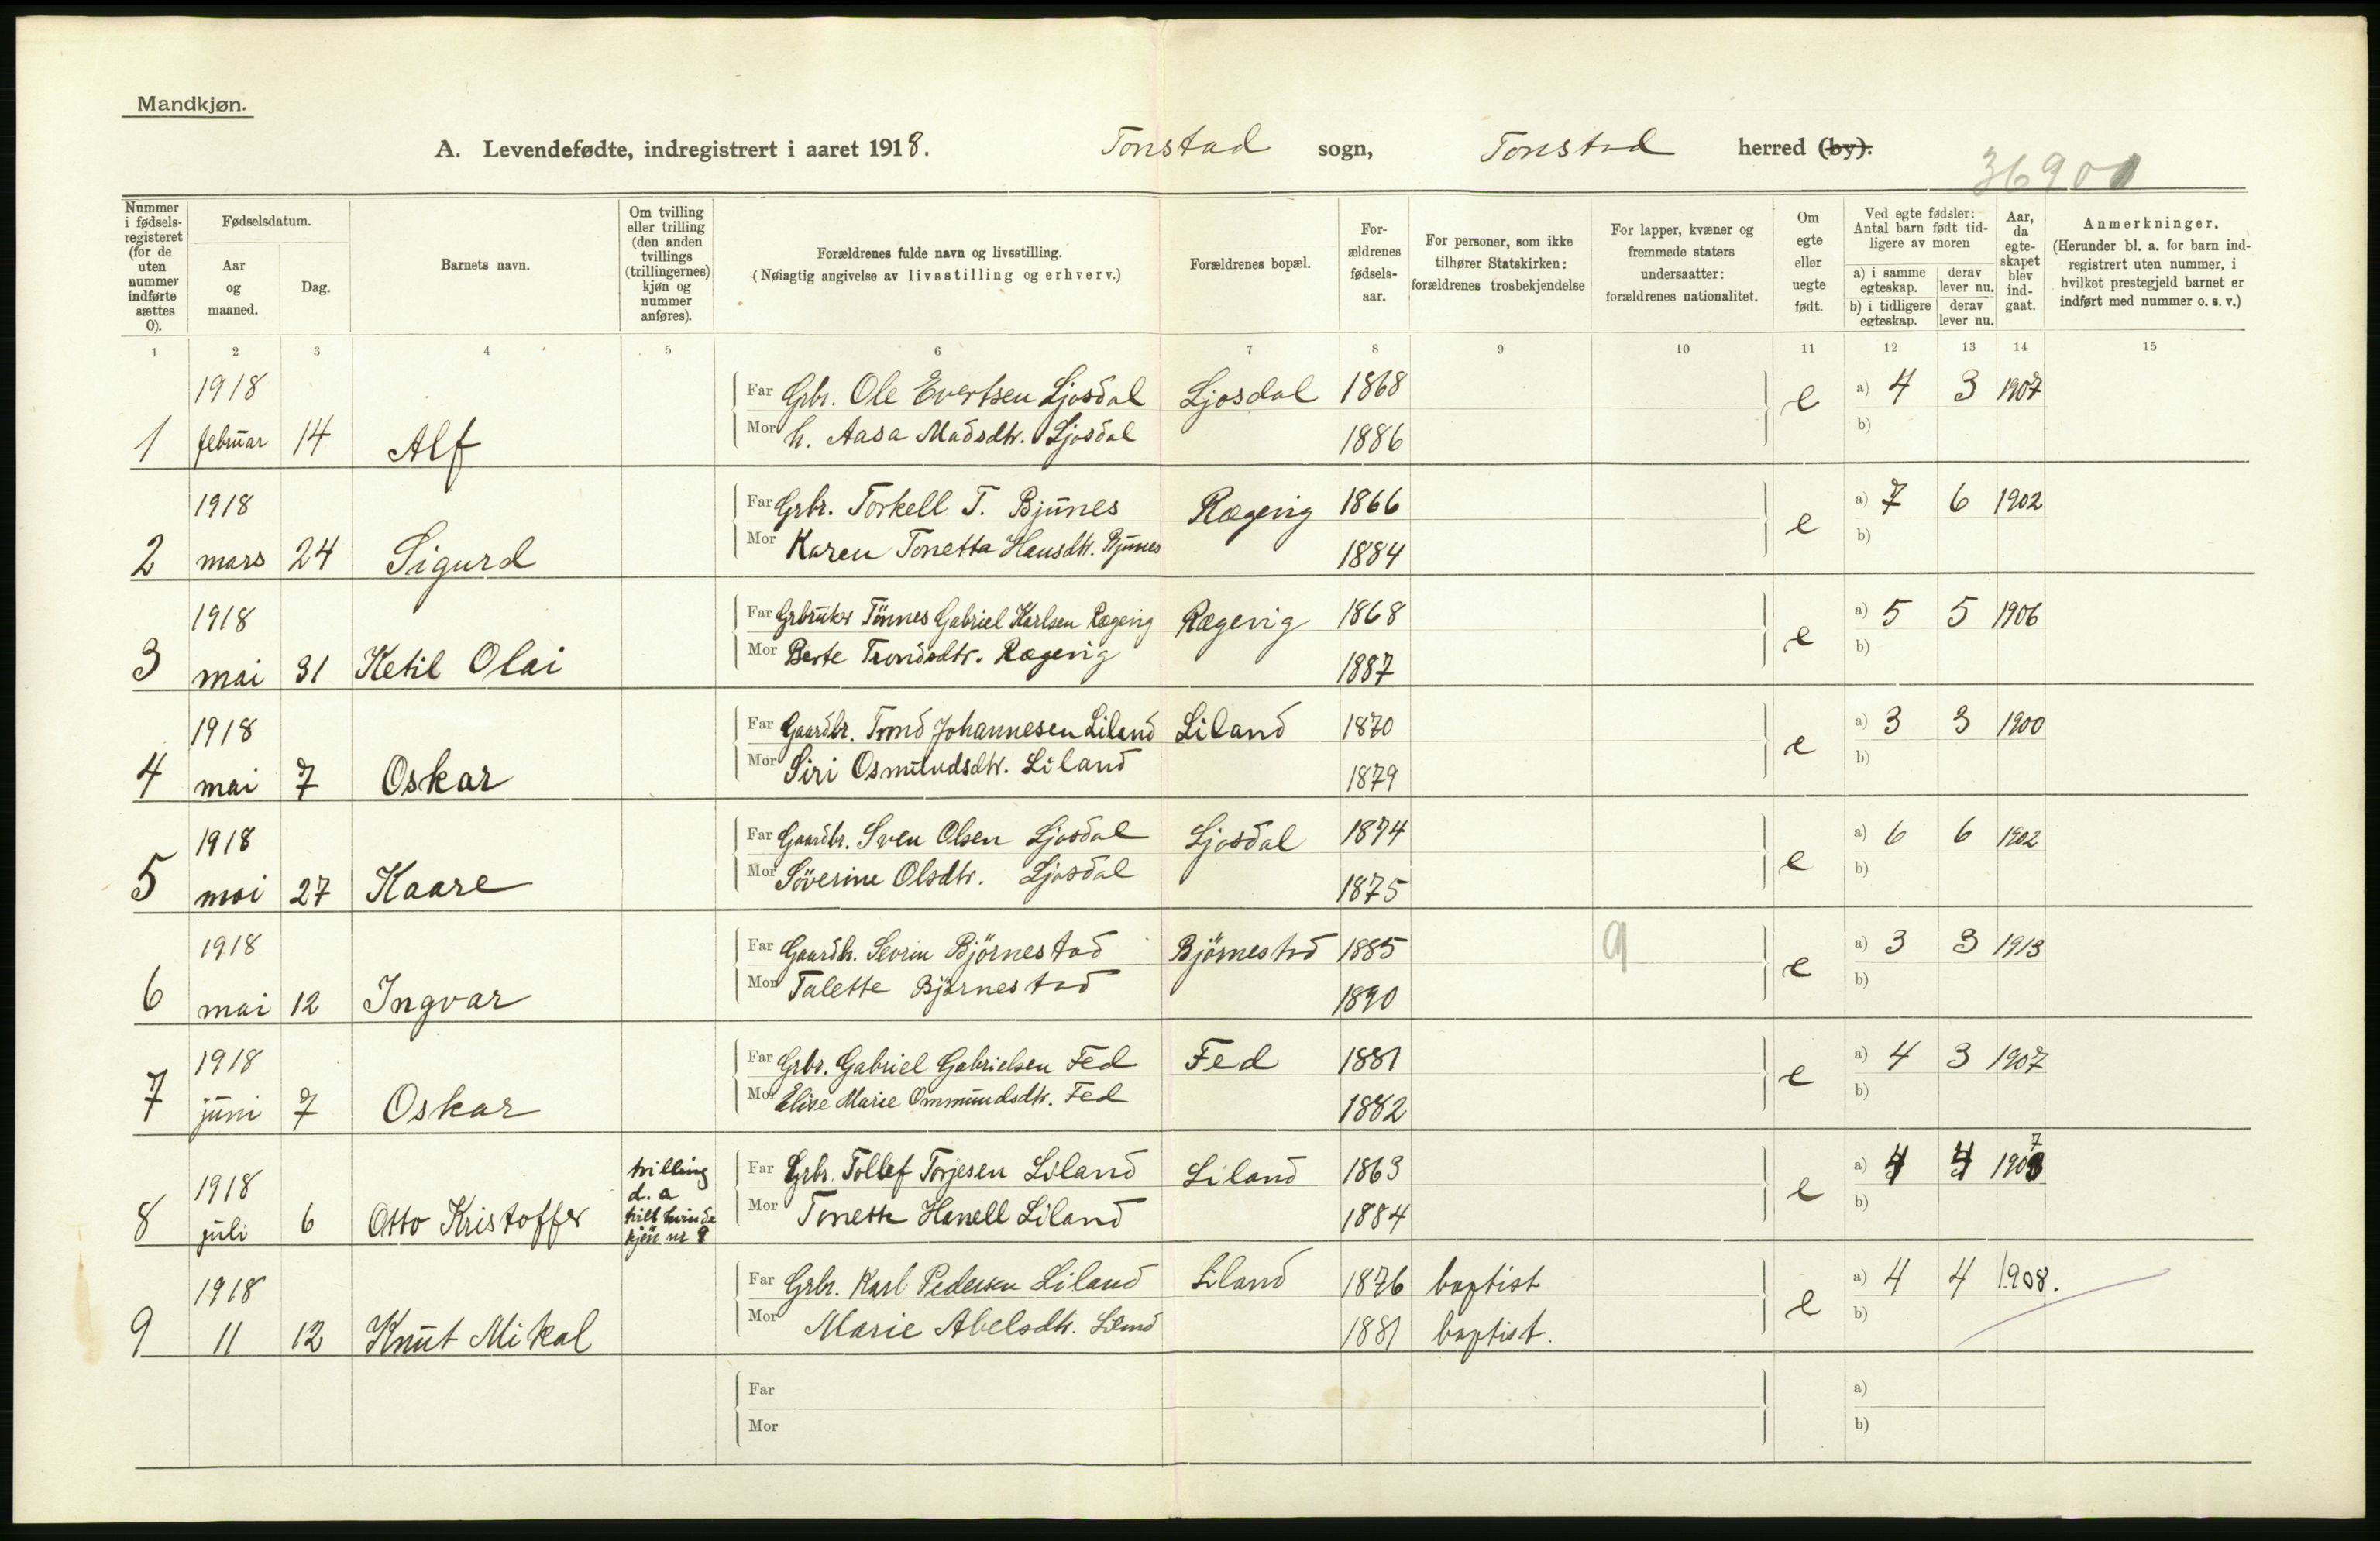 Mandkjøn.
A. Levendefødte, indregistrert i aaret 1918. Tonstad sogn, Tonstad herred (by).
36901
Nummer i fødselsregisteret (for de uten nummer indførte sættes 0).
Fødselsdatum.
Aar og maaned.
Dag.
Barnets navn.
Om tvilling eller trilling (den anden tvillings (trillingernes) kjøn og nummer anføres).
Forældrenes fulde navn og livsstilling.
(Nøiagtig angivelse av livsstilling og erhverv.)
Forældrenes bopæl.
For-ældrenes fødsels-aar.
For personer, som ikke tilhører Statskirken: forældrenes trosbekjendelse
For lapper, kvæner og fremmede staters undersaatter: forældrenes nationalitet.
Om egte eller uegte født.
Ved egte fødsler: Antal barn født tid-ligere av moren
a) i samme egteskap. derav lever nu.
b) i tidligere egteskap. derav lever nu.
Aar, da egte-skapet blev ind-gaat.
Anmerkninger.
(Herunder bl. a. for barn ind-registrert uten nummer, i hvilket prestegjeld barnet er indført med nummer o. s. v.)
1 2 3 4 5 6 7 8 9 10 11 12 13 14 15
1918 Far Grbr. Ole Evertsen Ljosdal Ljosdal 1868 e a) 4 3 1907
1 februar 14 Alf Mor h. Aasa Madsdtr. Ljosdal 1886 b)
1918 Far Grbr. Torkell T. Bjunes Rægevig 1866 e a) 7 6 1902
2 mars 24 Sigurd Mor Karen Tonetta Hansdtr. Bjunes 1884 b)
1918 Far Grbruker Tönnes Gabriel Karlsen Rægevig Rægevig 1868 e a) 5 5 1906
3 mai 31 Ketil Olai Mor Berte Trondsdtr. Rægevig 1887 b)
1918 Far Gaardbr. Trond Johannesen Liland Liland 1870 e a) 3 3 1900
4 mai 7 Oskar Mor Siri Osmundsdtr. Liland 1879 b)
1918 Far Gaardbr. Sven Olsen Ljosdal Ljosdal 1874 e a) 6 6 1902
5 mai 27 Kaare Mor Söverine Olsdtr. Ljosdal 1875 b)
1918 Far Gaardbr. Sevrin Björnestad Björnestad 1885 9 e a) 3 3 1913
6 mai 12 Ingvar Mor Talette Björnestad 1890 b)
1918 Far Grbr. Gabriel Gabrielsen Fed Fed 1881 e a) 4 3 1907
7 juni 7 Oskar Mor Elise Marie Ommundsdtr. Fed 1882 b)
1918 trilling d. a Far Grbr. Tollef Torjesen Liland Liland 1863 e a) 4 4 1907
8 juli 6 Otto Kristoffer kjön nr 9 Mor Tonette Hanell Liland 1884 b)
1918 Far Grbr. Karl Pedersen Liland Liland 1876 baptist e a) 4 4 1908.
9 11 12 Knut Mikal Mor Marie Abelsdtr. Liland 1881 baptist. b)
Far a)
Mor b)